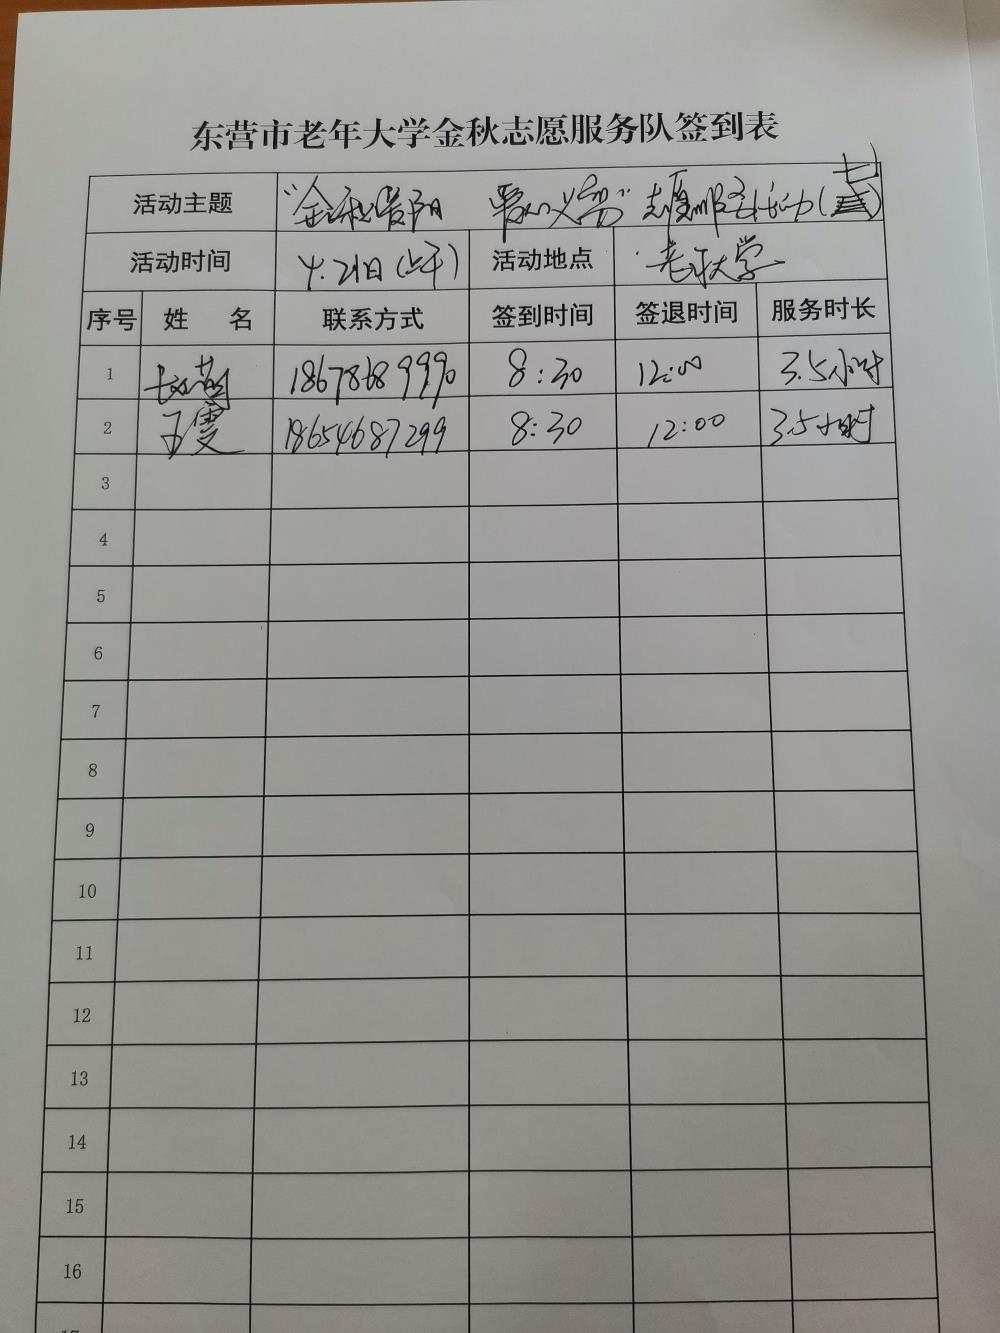 东营市老年大学金秋志愿服务队签到表
活动主题 "金秋 阳 爱心义剪"志愿服务活动(七)
活动时间 4.21日(上午) 活动地点 老年大学
序号 姓 名 联系方式 签到时间 签退时间 服务时长
1 8:30 12:00 3.5小时
2 18654687299 8:30 12:00 3.5小时
3
4
5
6
7
8
9
10
11
12
13
14
15
16
17